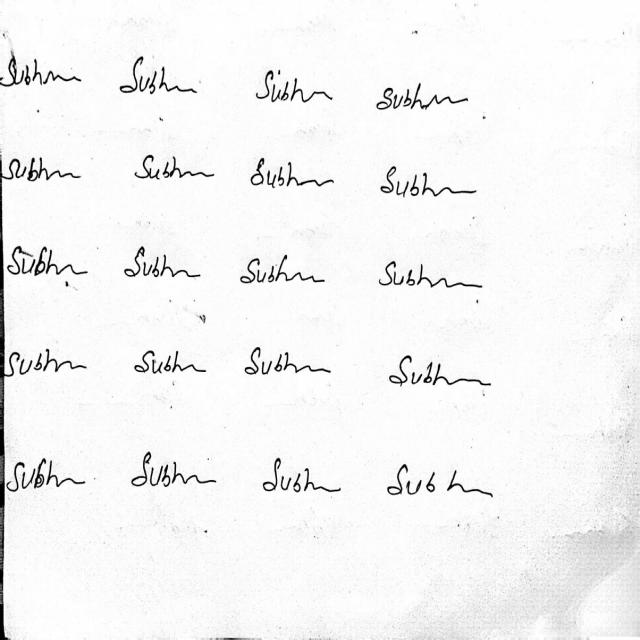 Subhm Subhm Subhm Subhm
Subhm Subhm Subhm Subhm
Subhm Subhm Subhm Subhm
Subhm Subhm Subhm Subhm
Subhm Subhm Subhm Subhm